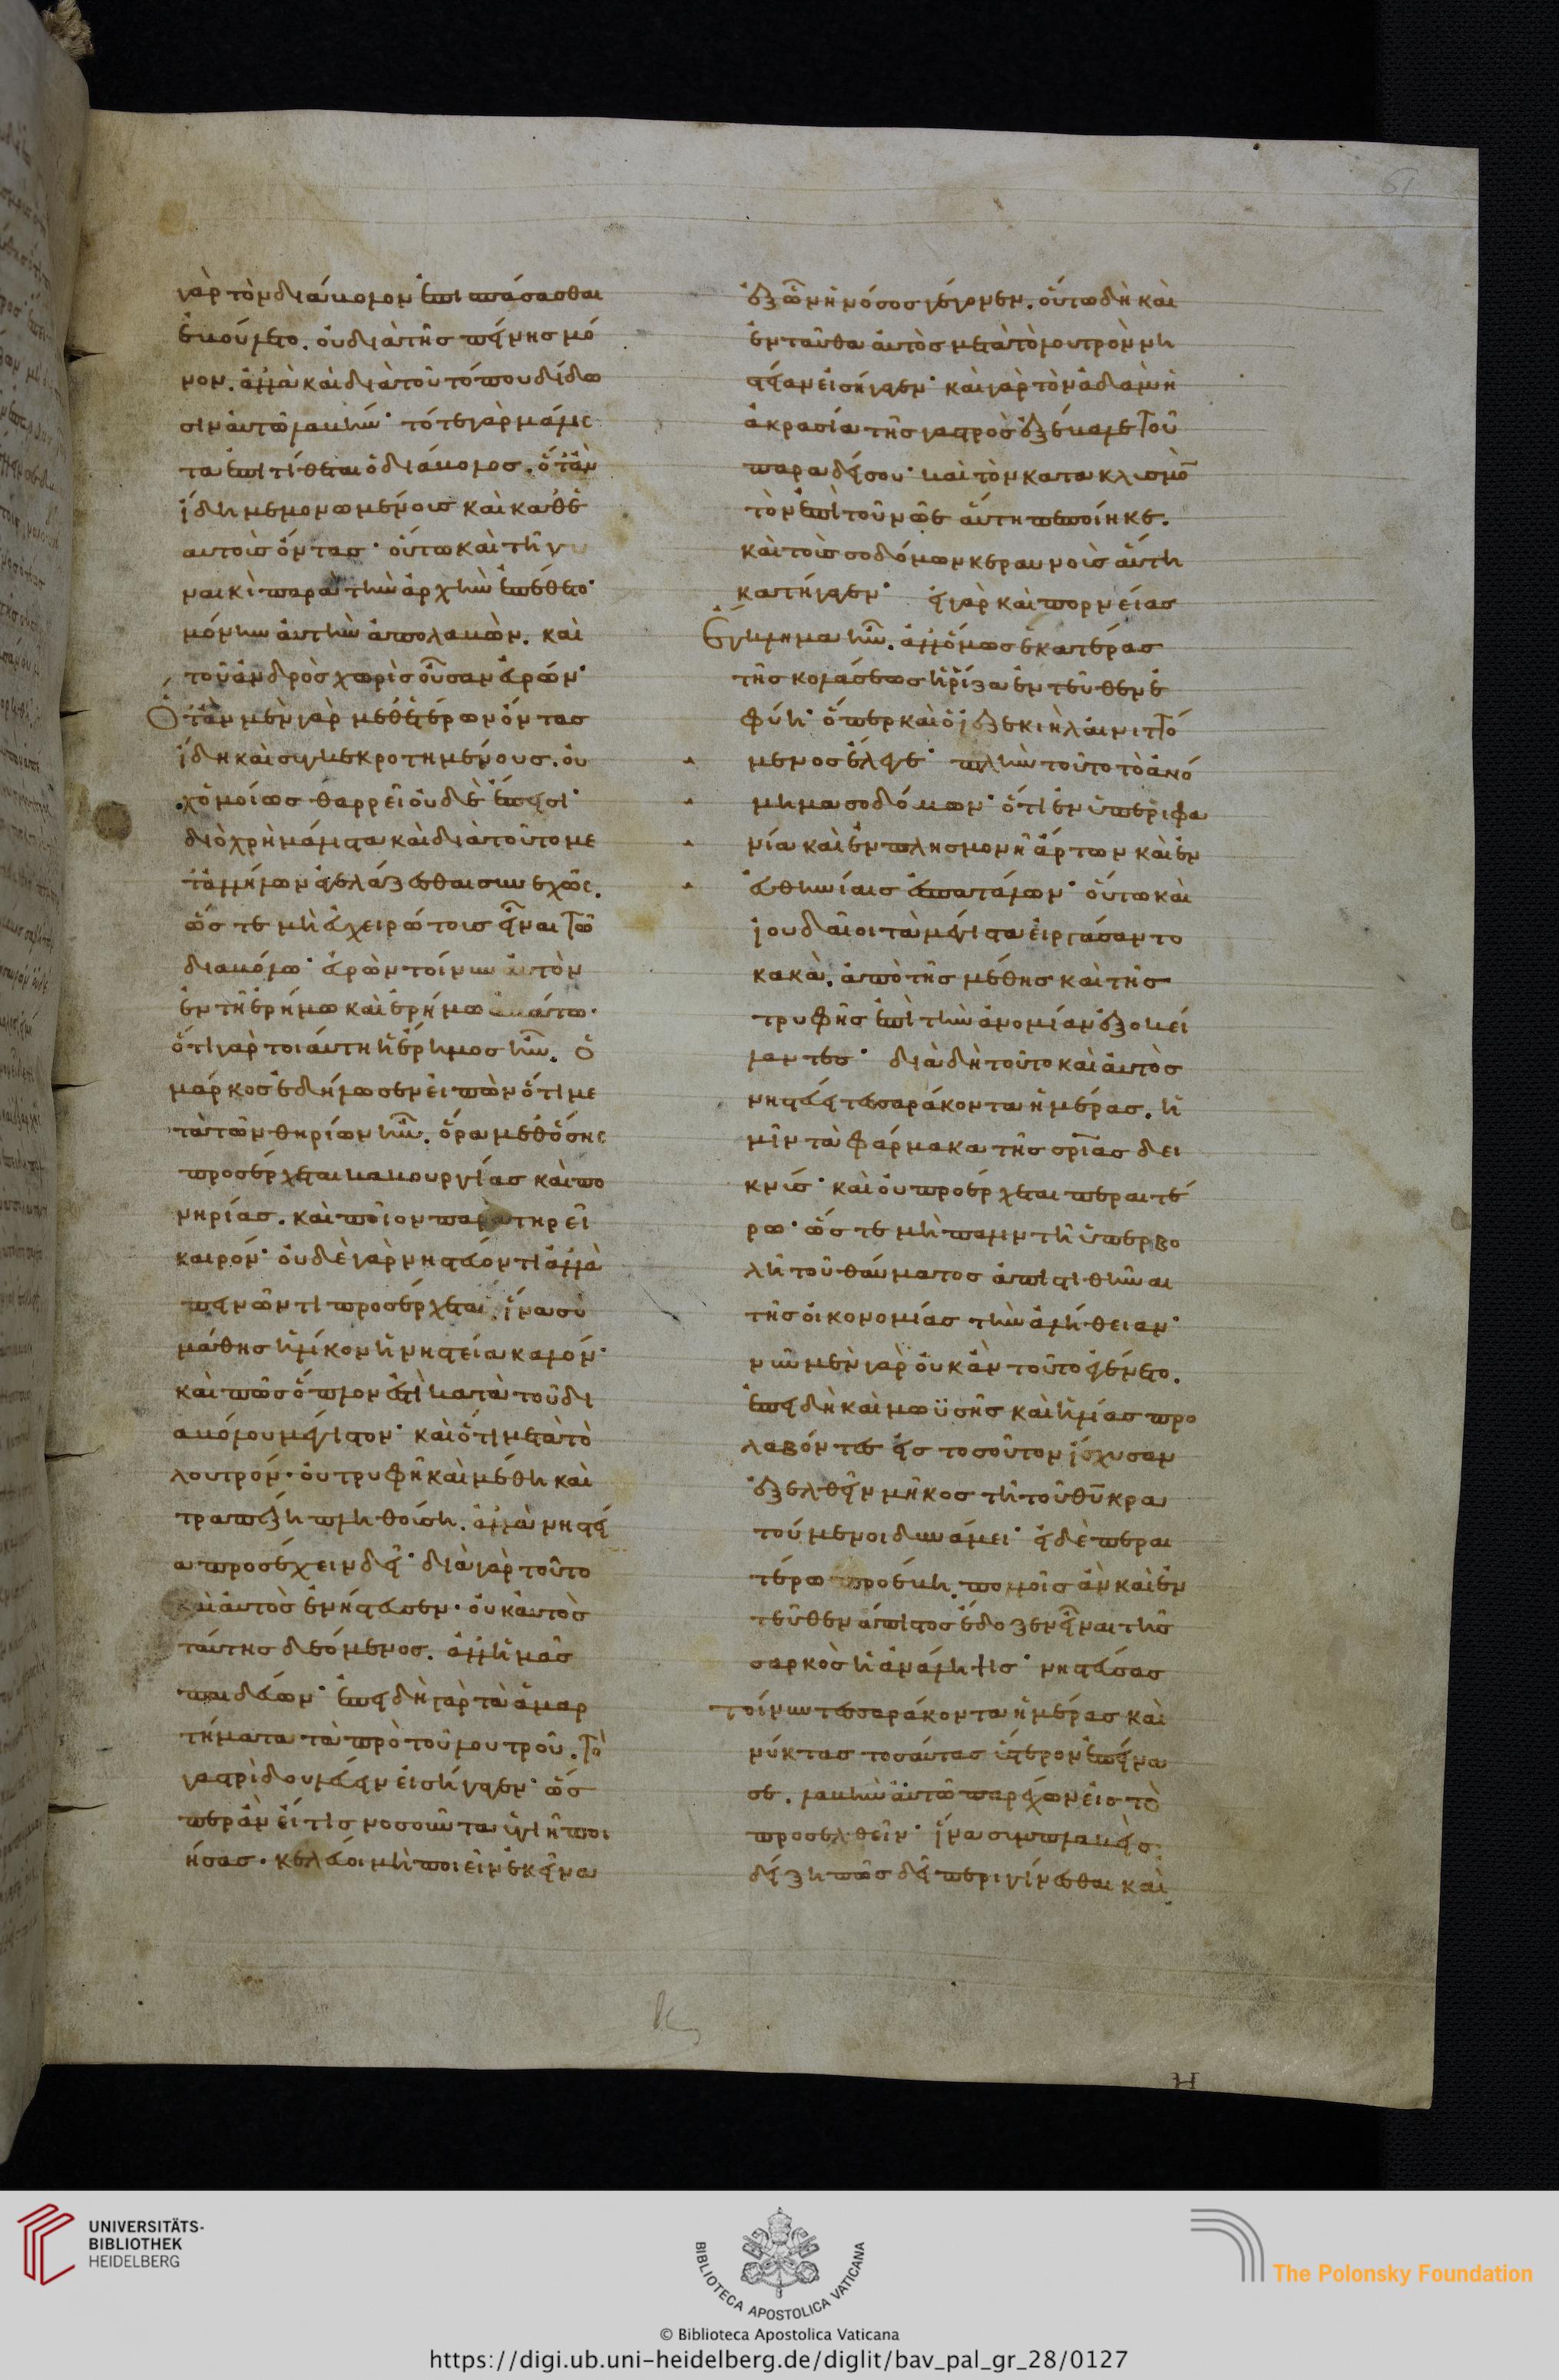 γὰρ τὸν διάβολον ἐπισπάσασθαι
ἐβούλετο. οὐ διὰ τῆς πείνης μό
νον. ἀλλὰ καὶ διὰ τοῦ τόπου δίδω
σιν αὐτῶ λαβήν· τότε γὰρ μάλις
τα ἐπιτίθεται ὁ διάβολος. ὅταν
ἴδη μεμονωμένους καὶ καθ' ἑ
αυτοὺς ὄντας· οὕτω καὶ τῆ γυ
ναικὶ παρὰ τὴν ἀρχὴν ἐπέθετο·
μόνην αὐτὴν ἀπολαβών. καὶ
τοῦ ἀνδρὸς χωρὶς οὖσαν εὑρών·
Ὅταν μὲν γὰρ μεθ' ἑτέρων ὄντας
ἴδη καὶ συγκεκροτημένους. οὐ
χ' ὁμοίως θαρρεῖ οὐδὲ ἔπεισι·
διὸ χρὴ μάλιστα καὶ διὰ τοῦτο με
τ' ἀλλήλων ἀγελάζεσθαι συνεχῶς.
ὥστε μὴ εὐχειρώτοις εἶναι τῶ
διαβόλω· εὑρὼν τοίνυν αὐτὸν
ἐν τῆ ἐρήμω καὶ ἐρήμω ἀβάτω·
ὅτι γὰρ τοιαύτη ἡ ἔρημος ἦν. ὁ
μάρκος ἐδήλωσεν εἰπὼν ὅτι με
τὰ τῶν θηρίων ἦν. ὅρα μεθ' ὅσης
προσέρχεται κακουργίας καὶ πο
νηρίας. καὶ ποῖον παρατηρεῖ
καιρόν· οὐδὲ γὰρ νηστεύοντι ἀλλὰ
πεινῶντι προσέρχεται. ἵνα σὺ
μάθης ἡλίκον ἡ νηστεία καλόν·
καὶ πῶς ὅπλον ἐστὶ κατὰ τοῦ δι
αβόλου μέγιστον· καὶ ὅτι μετὰ τὸ
λουτρόν. οὐ τρυφῆ καὶ μέθη καὶ
τραπέζη πληθούση. ἀλλὰ νηστεί
α προσέχειν δεῖ· διὰ γὰρ τοῦτο
καὶ αὐτὸς ἐνήστευσεν. οὐκ αὐτὸς
ταύτης δεόμενος. ἀλλ' ἡμᾶς
παιδεύων· ἐπειδὴ γὰρ τὰ ἁμαρ
τήματα τὰ πρὸ τοῦ λουτροῦ. τὸ
γαστρὶ δουλεύειν εἰσήγαγεν· ὥσ
περ ἂν εἴ τις νοσοῦντα ὑγιῆ ποι
ήσας. κελεύοι μὴ ποιεῖν ἐκεῖνα
ἐξ ὧν ἡ νόσος γέγονεν. οὕτω δὴ καὶ
ἐνταῦθα αὐτὸς μετὰ τὸ λουτρὸν νη
στείαν εἰσήγαγεν· καὶ γὰρ τὸν ἀδὰμ ἡ
ἀκρασία τῆς γαστρὸς ἐξέβαλε τοῦ
παραδείσου· καὶ τὸν κατακλυσμὸν
τὸν ἐπὶ τοῦ νῶε αὕτη πεποίηκε.
καὶ τοὺς σοδόμων κεραυνοὺς αὕτη
κατήγαγεν· εἰ γὰρ καὶ πορνείας
Ἔγκλημα ἦν. ἀλλ' ὅμως ἑκατέρας
τῆς κολάσεως ἡ ῥίζα ἐντεῦθεν ἐ
φύη· ὅπερ καὶ ὁ ἰεζεκιὴλ αἰνιττό
μενος ἔλεγε· πλὴν τοῦτο τὸ ἀνό
μημα σοδόμων· ὅτι ἐν ὑπερηφα
νία καὶ ἐν πλησμονῆ ἄρτων καὶ ἐν
εὐθηνίαις ἐσπατάλων· οὕτω καὶ
ἰουδαῖοι τὰ μέγιστα εἰργάσαντο
κακὰ. ἀπὸ τῆς μέθης καὶ τῆς
τρυφῆς ἐπὶ τὴν ἀνομίαν ἐξοκεί
λαντες· διὰ δὴ τοῦτο καὶ αὐτὸς
νηστεύει τεσσαράκοντα ἡμέρας. ἡ
μῖν τὰ φάρμακα τῆς σρίας δει
κνύς· καὶ οὐ προέρχεται περαιτέ
ρω· ὥστε μὴ πάλιν τῆ ὑπερβο
λῆ τοῦ θαύματος ἀπιστηθῆναι
τῆς οἰκονομίας τὴν ἀλήθειαν·
νῦν μὲν γὰρ οὐκ ἂν τοῦτο ἐγένετο.
ἐπειδὴ καὶ μωϋσῆς καὶ ἡλίας προ
λαβόντες εἰς τοσοῦτον ἴσχυσαν
ἐξελθεῖν μῆκος τῆ τοῦ θυ κρα
τούμενοι δυνάμει· εἰ δὲ περαι
τέρω προέβη. πολλοῖς ἂν καὶ ἐν
τεῦθεν ἄπιστος ἔδοξεν εἶναι τῆς
σαρκὸς ἡ ἀνάληψις· νηστεύσας
τοίνυν τεσσαράκοντα ἡμέρας καὶ
νύκτας τοσαύτας ὕστερον ἐπείνα
σε. λαβὴν αὐτῶ παρέχων εἰς τὸ
προσελθεῖν· ἵνα συμπλακεὶς.
δείξη πῶς δεῖ περιγίνεσθαι καὶ
UNIVERSITÄTS-
BIBLIOTHEK
HEIDELBERG
BIBLIOTECA APOSTOLICA VATICANA
The Polonsky Foundation
© Biblioteca Apostolica Vaticana
https://digi.ub.uni-heidelberg.de/diglit/bav_pal_gr_28/0127